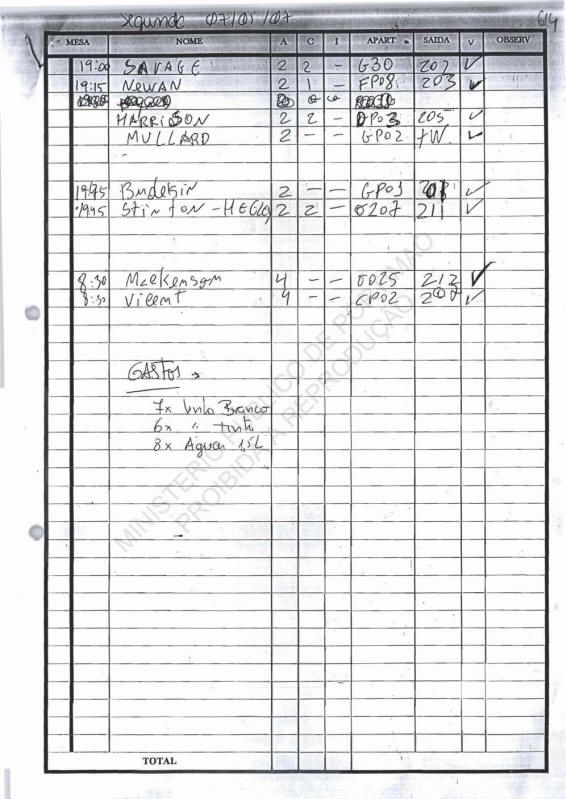 Segunda 07/05/07 614
MESA NOME A C I APART SAIDA V OBSERV
19:00 SAVAGE 2 2 - G30 207 ✓
19:15 NEWAN 2 1 - FP08 203 ✓
HARRISON 2 2 - DP03 205 ✓
MULLARD 2 - - GP02 TW. ✓
1945 2 - - GP01 ✓
1945 Stinton - HEGG 2 2 - 0207 211 ✓
8:30 Mackensom 4 - - 0025 212 ✓
8:30 Vicent 4 - - CP02 ✓
GASTOS →
7x Vinho Branco
6x " tinto
8x Aguas 1,5L
MINISTERIO PUBLICO DE PORTIMAO
PROIBIDA A REPRODUÇÃO
TOTAL